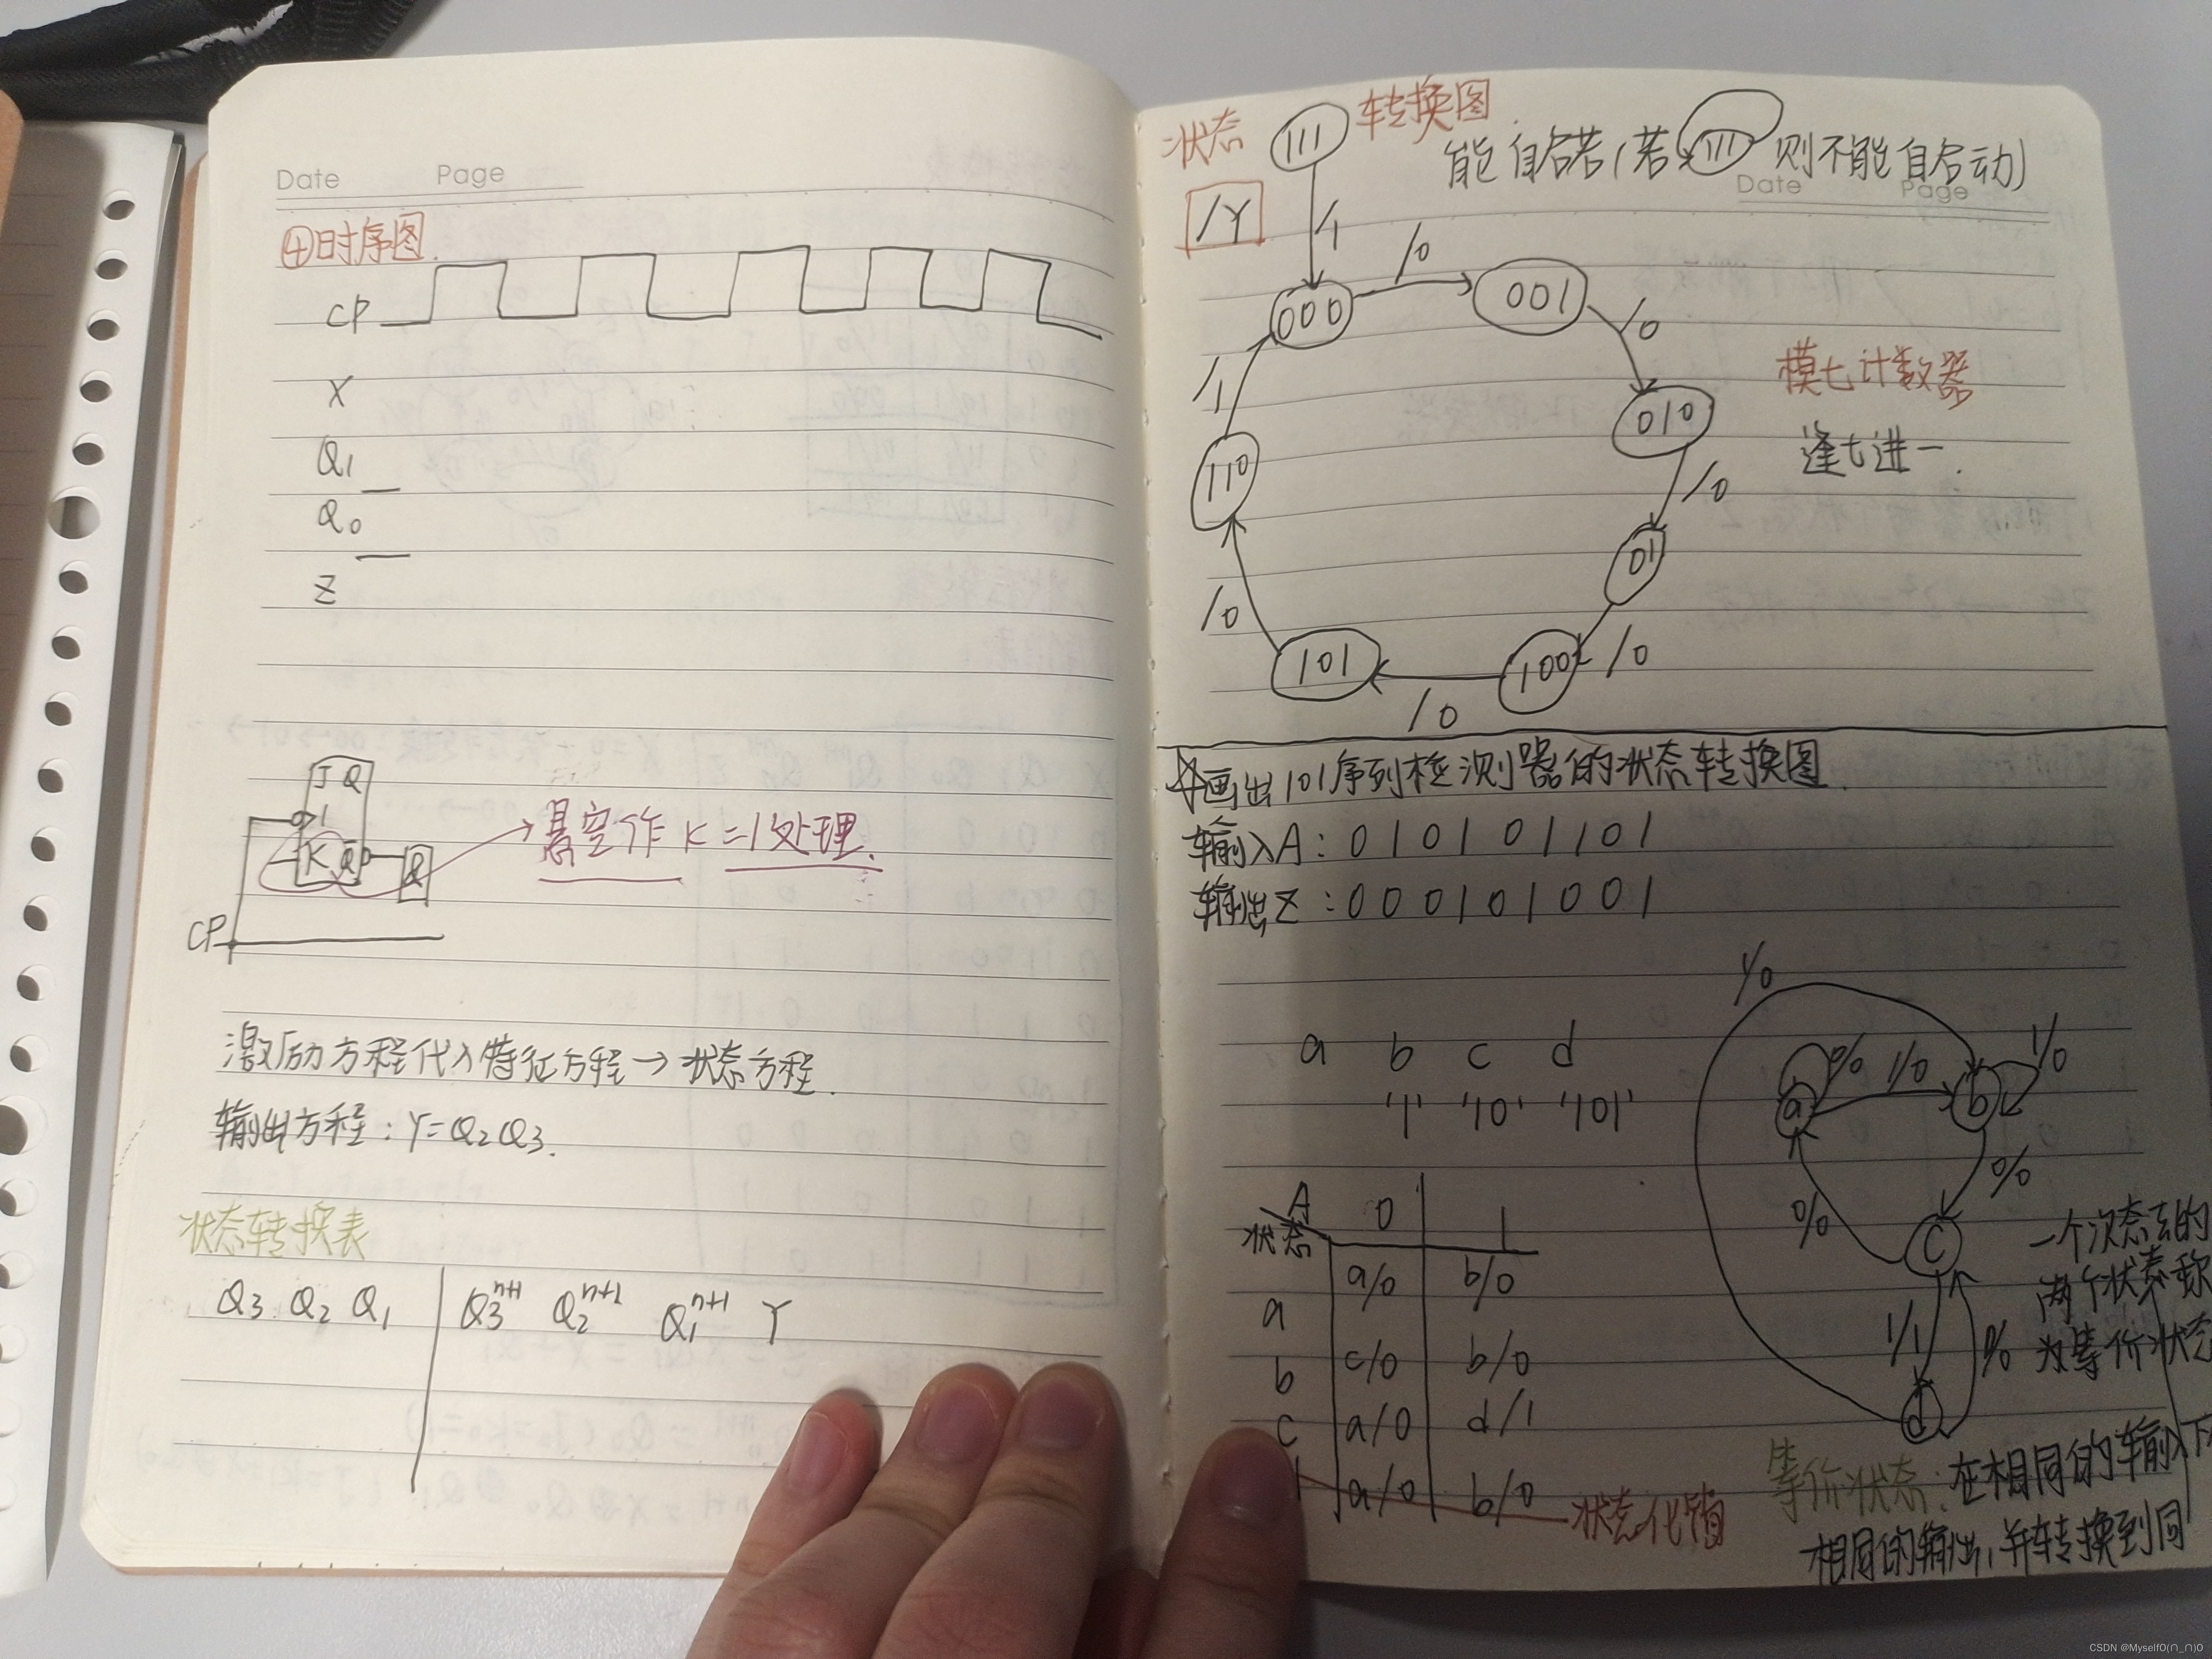 Date Page
④时序图.
CP
X
Q1
Q0
Z
J Q
1
K Q
&
CP
悬空作K=1处理.
激励方程代入特征方程→状态方程.
输出方程:Y=Q2Q3.
状态转换表
Q3 Q2 Q1 Q3^{n+1} Q2^{n+1} Q1^{n+1} Y
状态 111 转换图
能自启若(若 111 则不能自启动)
Date Page
/Y
/1
/0
000
001
/0
/1
010
模七计数器
逢七进一.
110
/0
01
/0
/0
101
100
/0
☆画出101序列检测器的状态转换图.
输入A:0 1 0 1 0 1 1 0 1
输出Z:0 0 0 1 0 1 0 0 1
a b c d
'1' '10' '101'
1/0
a 0/0 1/0 b 1/0
0/0
0/0
c
1/1
0/0
d
A 0 1
状态
a a/0 b/0
b c/0 b/0
c a/0 d/1
a/0 b/0
状态化销
一个次态去的
两个状态称
为等价状态
等价状态:在相同的输入下
相同的输出,并转换到同
CSDN @MyselfO(∩_∩)O